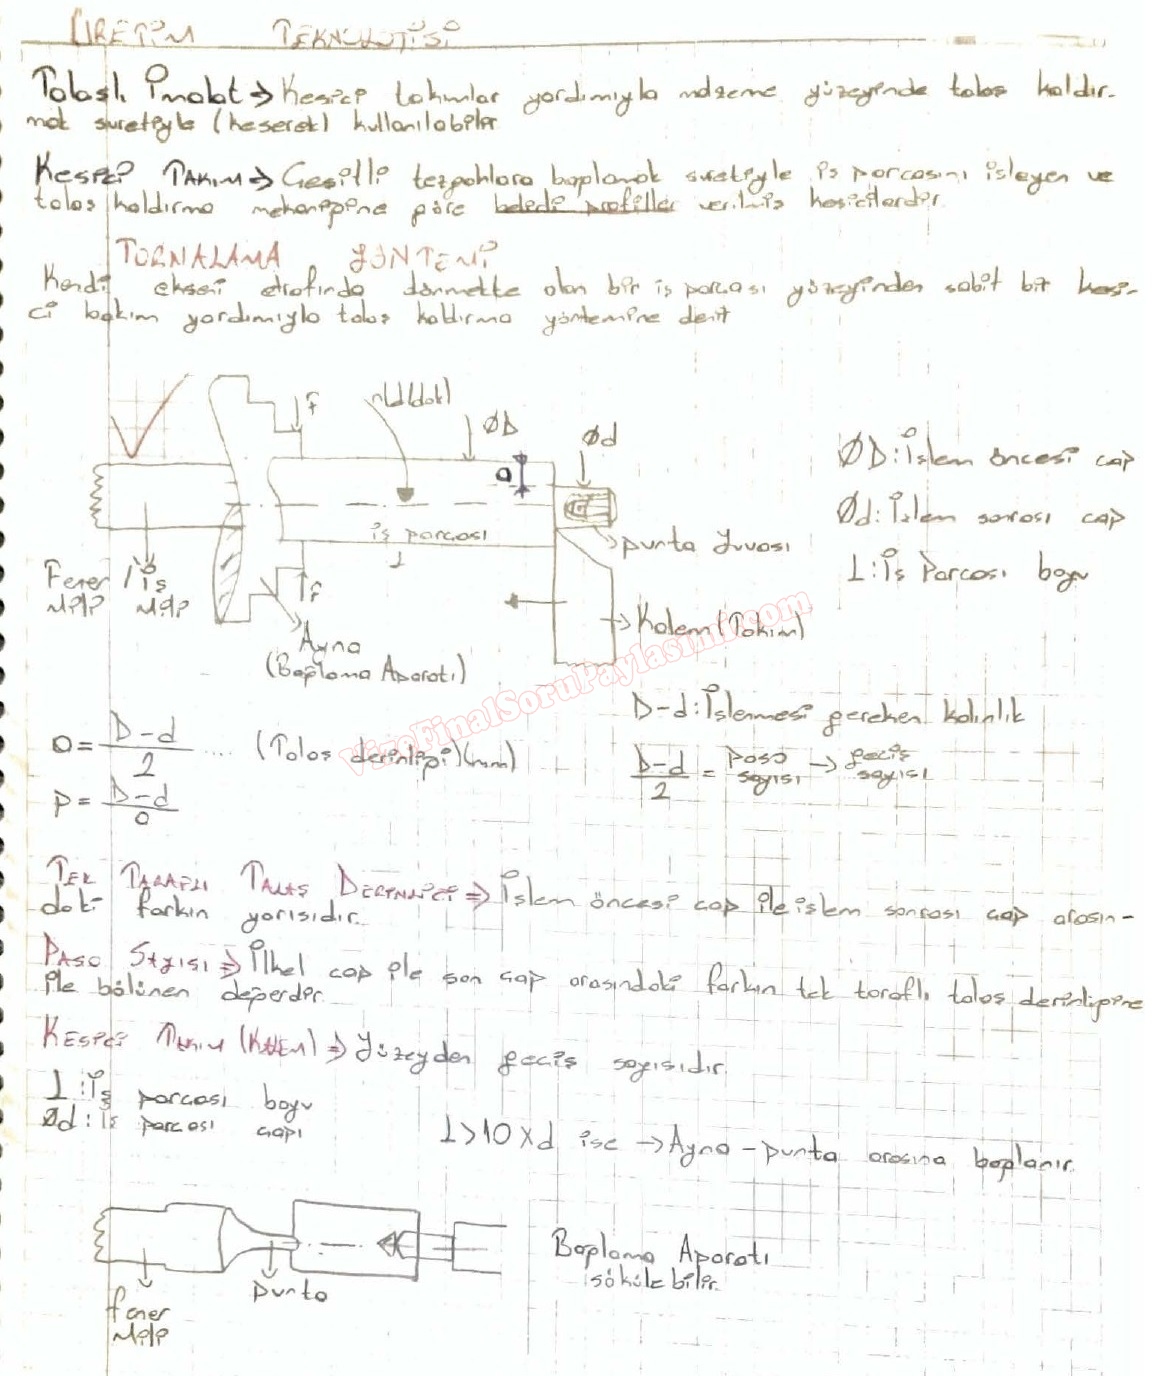 ÜRETİM TEKNOLOJİSİ
Talaşlı İmalat → Kesici takımlar yardımıyla malzeme yüzeyinde talaş kaldır-
mak suretiyle (keserek) kullanılabilir
Kesici TAKIM → Çeşitli tezgahlara bağlamak suretiyle iş parçasını işleyen ve
talaş kaldırma mekaniğine göre belirli profiller verilmiş kesicilerdir.
TORNALAMA YÖNTEMİ
Kendi ekseni etrafında dönmekte olan bir iş parçası yüzeyinden sabit bir kesi-
ci takım yardımıyla talaş kaldırma yöntemine denir
F
n(d/dak)
ØD
Ød
a
iş parçası
L
punta yuvası
Fener / iş
Mili Mili
F
Ayna
(Bağlama Aparatı)
Kalem (Takım)
ØD: İşlem öncesi çap
Ød: İşlem sonrası çap
L: İş Parçası boyu
a = D-d / 2 .... (Talaş derinliği)(mm)
p = D-d / a
D-d: İşlenmesi gereken kalınlık
D-d / 2 = paso sayısı → geçiş sayısı
TEK TARAFLI TALAŞ DERİNLİĞİ ⇒ İşlem öncesi çap ile işlem sonrası çap arasın-
daki farkın yarısıdır.
PASO SAYISI ⇒ İlkel çap ile son çap arasındaki farkın tek taraflı talaş derinliğine
ile bölünen değerdir.
KESİCİ TAKIM (KALEM) ⇒ Yüzeyden geçiş sayısıdır.
L: İş parçası boyu
Ød: İş parçası çapı
L > 10 x d ise → Ayna - punta arasına bağlanır.
fener
Mili
Punta
Bağlama Aparatı
sökülebilir.
VizeFinalSoruPaylasimi.com